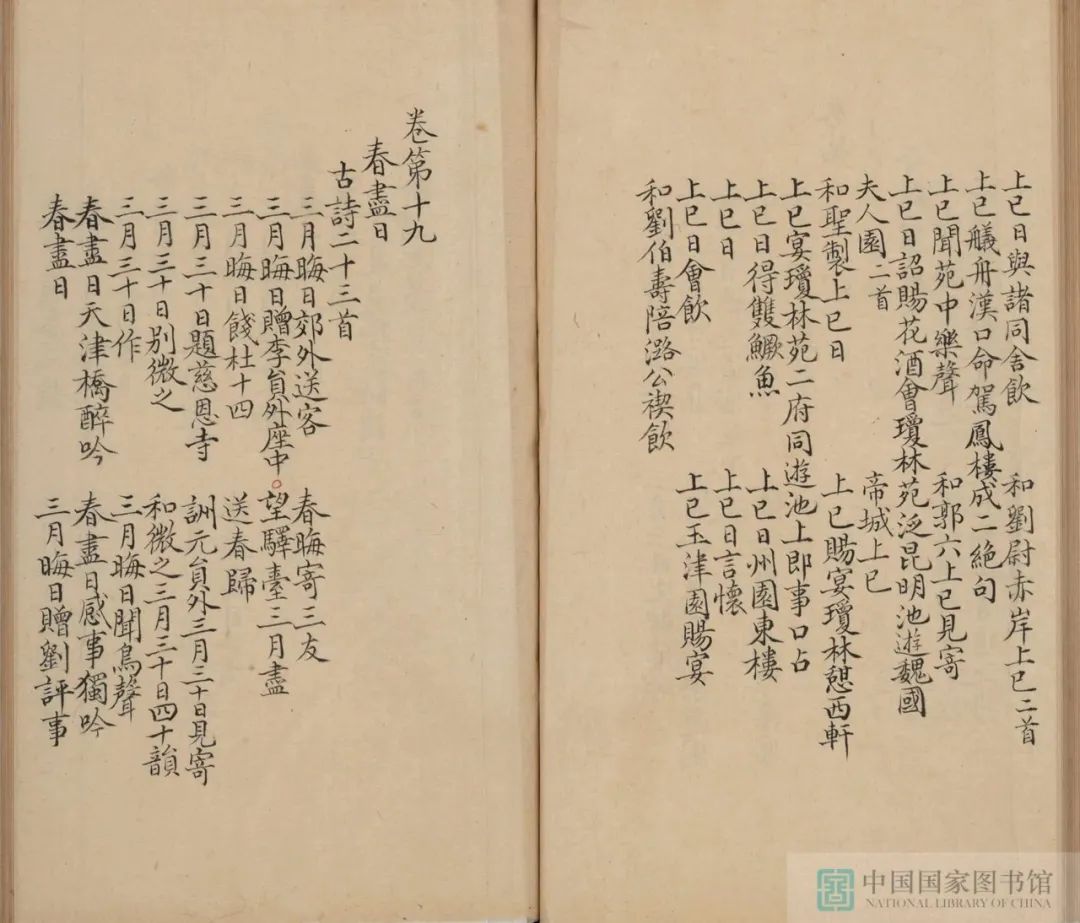 上巳日與諸同舍飲 和劉尉赤岸上巳二首
上巳艤舟漢口命駕鳳樓成二絕句
上巳聞苑中樂聲 和郭六上巳見寄
上巳日詔賜花酒會瓊林苑泛昆明池遊魏國
夫人園二首 帝城上巳
和聖製上巳日 上巳賜宴瓊林憩西軒
上巳宴瓊林苑二府同遊池上即事口占
上巳日得雙鱖魚 上巳日州園東樓
上巳日 上巳日言懷
上巳日會飲 上巳玉津園賜宴
和劉伯壽陪潞公禊飲
卷第十九
春盡日
古詩二十三首
三月晦日郊外送客 春晦寄三友
三月晦日贈李貟外座中 望驛臺三月盡
三月晦日餞杜十四 送春歸
三月三十日題慈恩寺 詶元貟外三月三十日見寄
三月三十日別微之 和微之三月三十日四十韻
三月三十日作 三月晦日聞鳥聲
春盡日天津橋醉吟 春盡日感事獨吟
春盡日 三月晦日贈劉評事
中国国家图书馆
NATIONAL LIBRARY OF CHINA